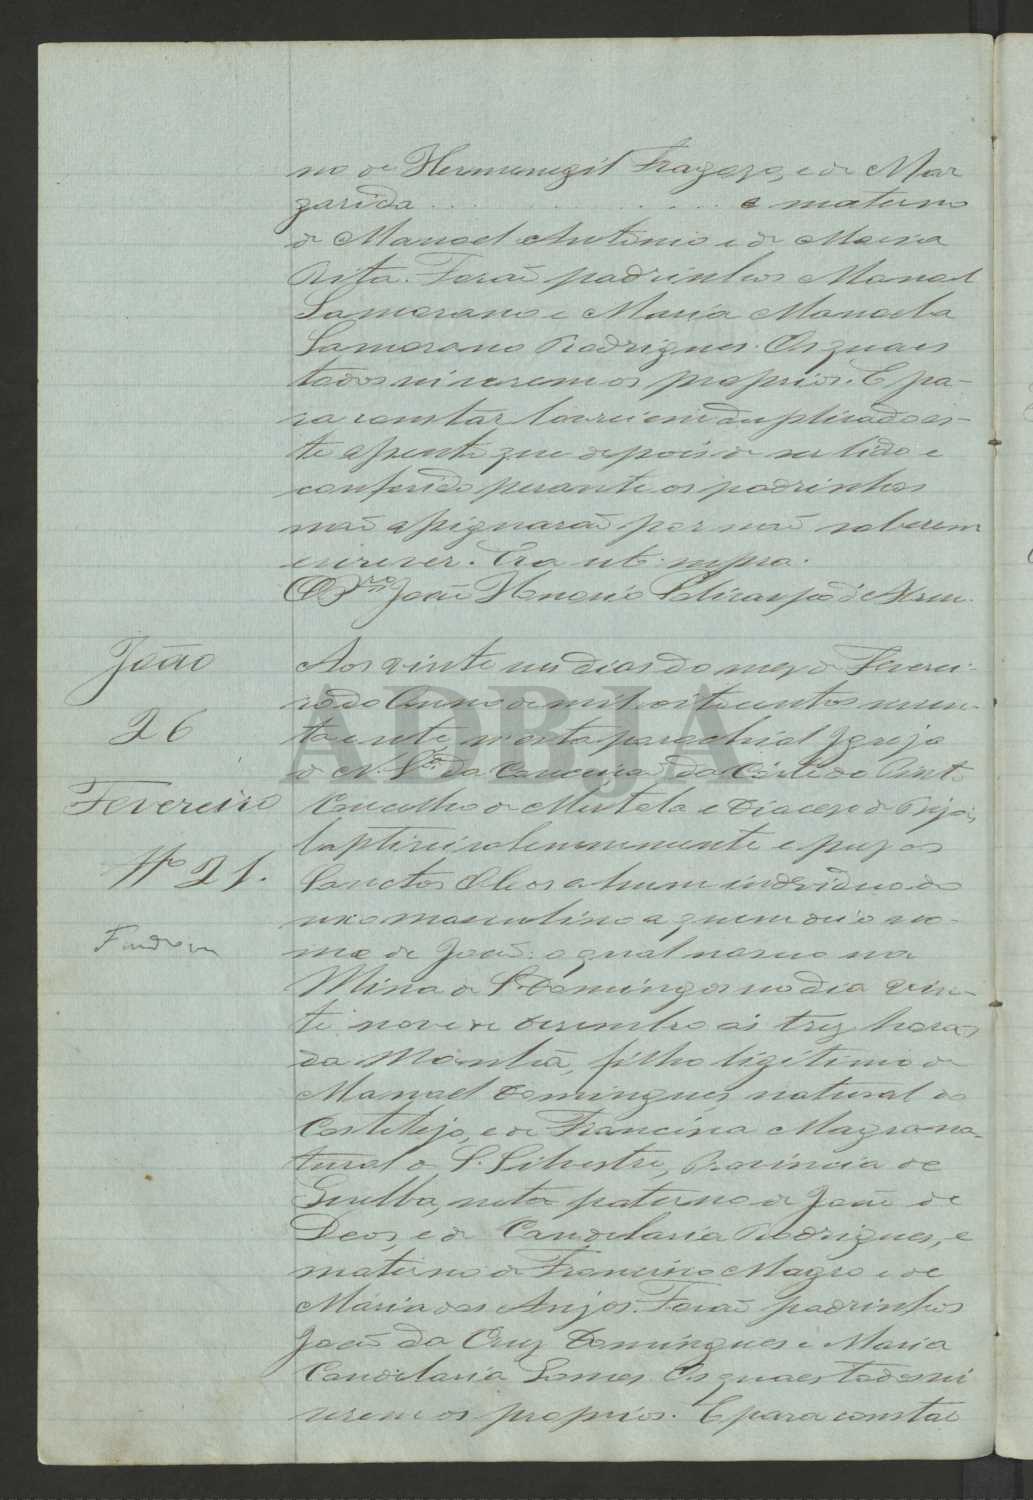 no de Hermenegil Fragozo, e de Mar
garida . . . . . . . . . . e materno
de Manoel Antonio e de Maria
Rita. Forão padrinhos Manoel
Samorano e Maria Manoela
Samorano Rodrigues. Os quaes
todos sei serem os proprios. E pa-
ra constar lavrei em duplicado es-
te assento que depois de ser lido e
conferido perante os padrinhos
não assignarão por não saberem
escrever. Era ut supra.
João Honorio
João
26
Fevereiro
Nº 21.
Aos vinte seis dias do mez de Feverei-
ro do Anno de mil oitocentos noven-
ta e sete nesta parochial Igreja
de N. Srª da Conceição da Côrte do Pinto
Concelho de Mertola e Diocese de Beja,
baptisei solemnemente e puz os
Sanctos Oleos a hum individuo do
sexo masculino a quem dei o no-
me de João: o qual nasceu na
Mina de S. Domingos no dia vin-
te nove de Dezembro ás trez horas
da Manhã, filho legitimo de
Manoel Domingues, natural de
Castelejo, e de Francisca Magro na-
tural de S. Silvestre, Provincia de
Huelba, neto paterno de João de
Deos, e de Candelaria Rodrigues, e
materno de Francisco Magro e de
Maria dos Anjos. Forão padrinhos
João da Cruz Domingues e Maria
Candelaria Gomes. Os quaes todos sei
serem os proprios. E para constar
ADBJA